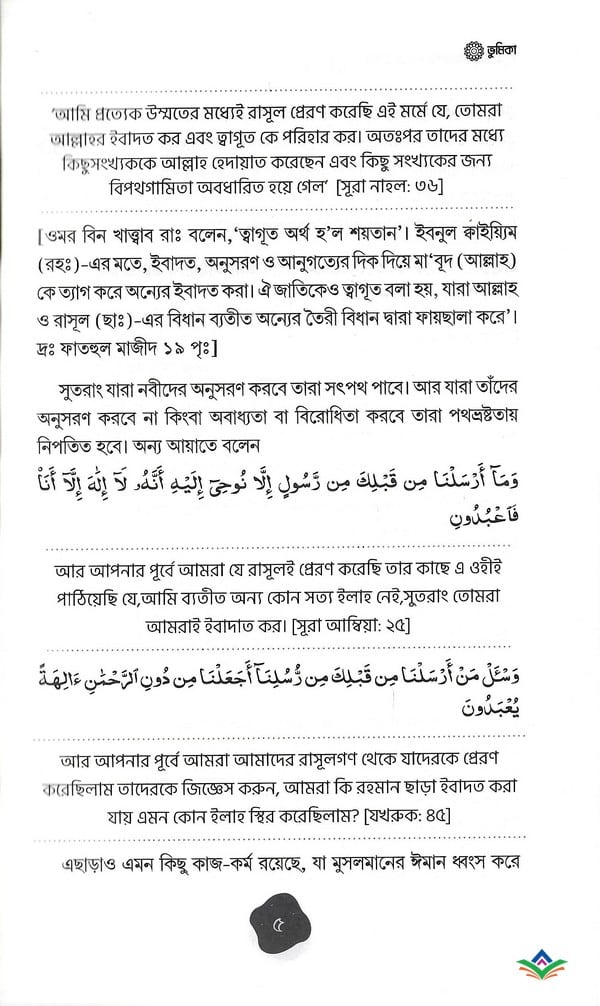 ভূমিকা
'আমি প্রত্যেক উম্মতের মধ্যেই রাসূল প্রেরণ করেছি এই মর্মে যে, তোমরা
আল্লাহর ইবাদত কর এবং ত্বাগূত কে পরিহার কর। অতঃপর তাদের মধ্যে
কিছুসংখ্যককে আল্লাহ হেদায়াত করেছেন এবং কিছু সংখ্যকের জন্য
বিপথগামিতা অবধারিত হয়ে গেল' [সূরা নাহল: ৩৬]
[ওমর বিন খাত্ত্বাব রাঃ বলেন,'ত্বাগূত অর্থ হ'ল শয়তান'। ইবনুল ক্বাইয়্যিম
(রহঃ)-এর মতে, ইবাদত, অনুসরণ ও আনুগত্যের দিক দিয়ে মা'বূদ (আল্লাহ)
কে ত্যাগ করে অন্যের ইবাদত করা। ঐ জাতিকেও ত্বাগূত বলা হয়, যারা আল্লাহ
ও রাসূল (ছাঃ)-এর বিধান ব্যতীত অন্যের তৈরী বিধান দ্বারা ফায়ছালা করে'।
দ্রঃ ফাতহুল মাজীদ ১৯ পৃঃ]
সুতরাং যারা নবীদের অনুসরণ করবে তারা সৎপথ পাবে। আর যারা তাঁদের
অনুসরণ করবে না কিংবা অবাধ্যতা বা বিরোধিতা করবে তারা পথভ্রষ্টতায়
নিপতিত হবে। অন্য আয়াতে বলেন
وَمَآ أَرْسَلْنَا مِن قَبْلِكَ مِن رَّسُولٍ إِلَّا نُوحِىٓ إِلَيْهِ أَنَّهُۥ لَآ إِلَٰهَ إِلَّآ أَنَا۠
فَٱعْبُدُونِ
আর আপনার পূর্বে আমরা যে রাসূলই প্রেরণ করেছি তার কাছে এ ওহীই
পাঠিয়েছি যে,আমি ব্যতীত অন্য কোন সত্য ইলাহ নেই,সুতরাং তোমরা
আমরাই ইবাদাত কর। [সূরা আম্বিয়া: ২৫]
وَسْـَٔلْ مَنْ أَرْسَلْنَا مِن قَبْلِكَ مِن رُّسُلِنَآ أَجَعَلْنَا مِن دُونِ ٱلرَّحْمَٰنِ ءَالِهَةً
يُعْبَدُونَ
আর আপনার পূর্বে আমরা আমাদের রাসূলগণ থেকে যাদেরকে প্রেরণ
করেছিলাম তাদেরকে জিজ্ঞেস করুন, আমরা কি রহমান ছাড়া ইবাদত করা
যায় এমন কোন ইলাহ স্থির করেছিলাম? [যখরুক: ৪৫]
এছাড়াও এমন কিছু কাজ-কর্ম রয়েছে, যা মুসলমানের ঈমান ধ্বংস করে
৫